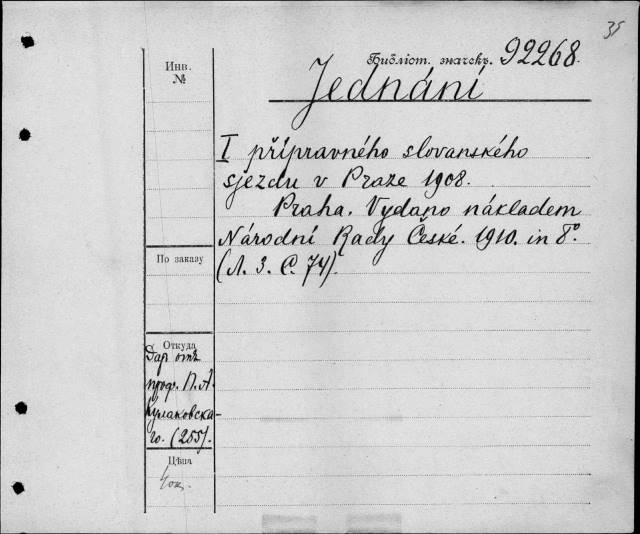 35
Библіот. значекъ. 92268.
Jednání
I přípravného slovanského
sjezdu v Praze 1908.
Praha. Vydano nákladem
Národní Rady České. 1910. in 8º
(Л. 3. С. 74).
Инв.
№
По заказу
Откуда
Дар отъ
проф. П. А.
Кулаковска-
го. (255).
Цѣна